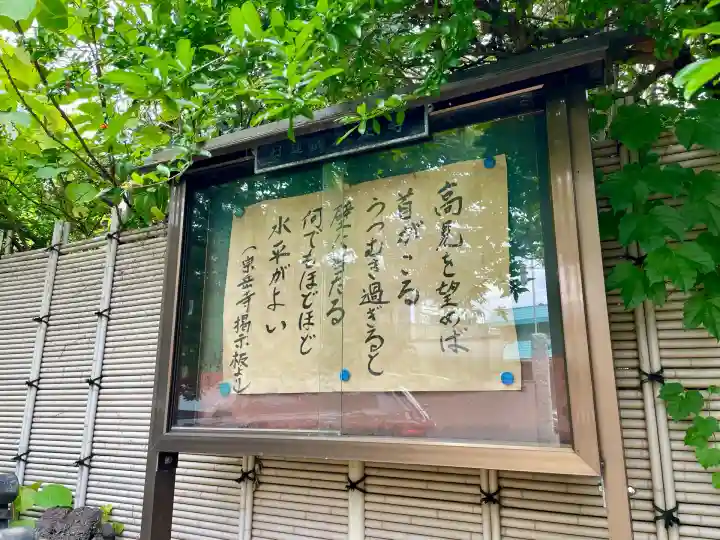 高見を望めば
首がこる
うつむき過ぎると
壁に当たる
何でもほどほど
水平がよい
(東岳寺掲示板より)